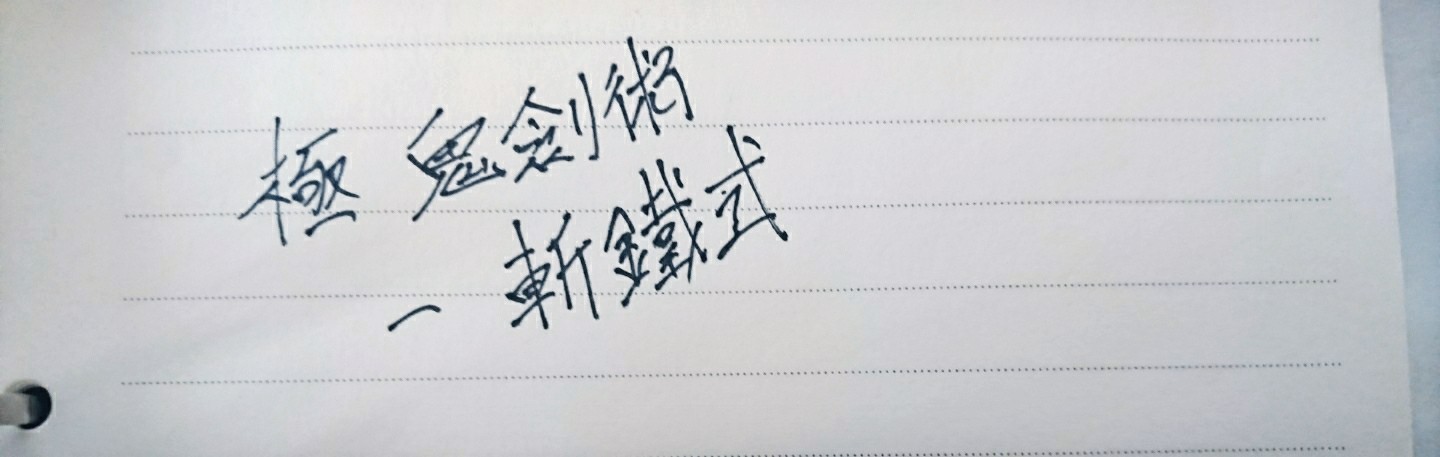 極 鬼劍術
一 斬鐵式